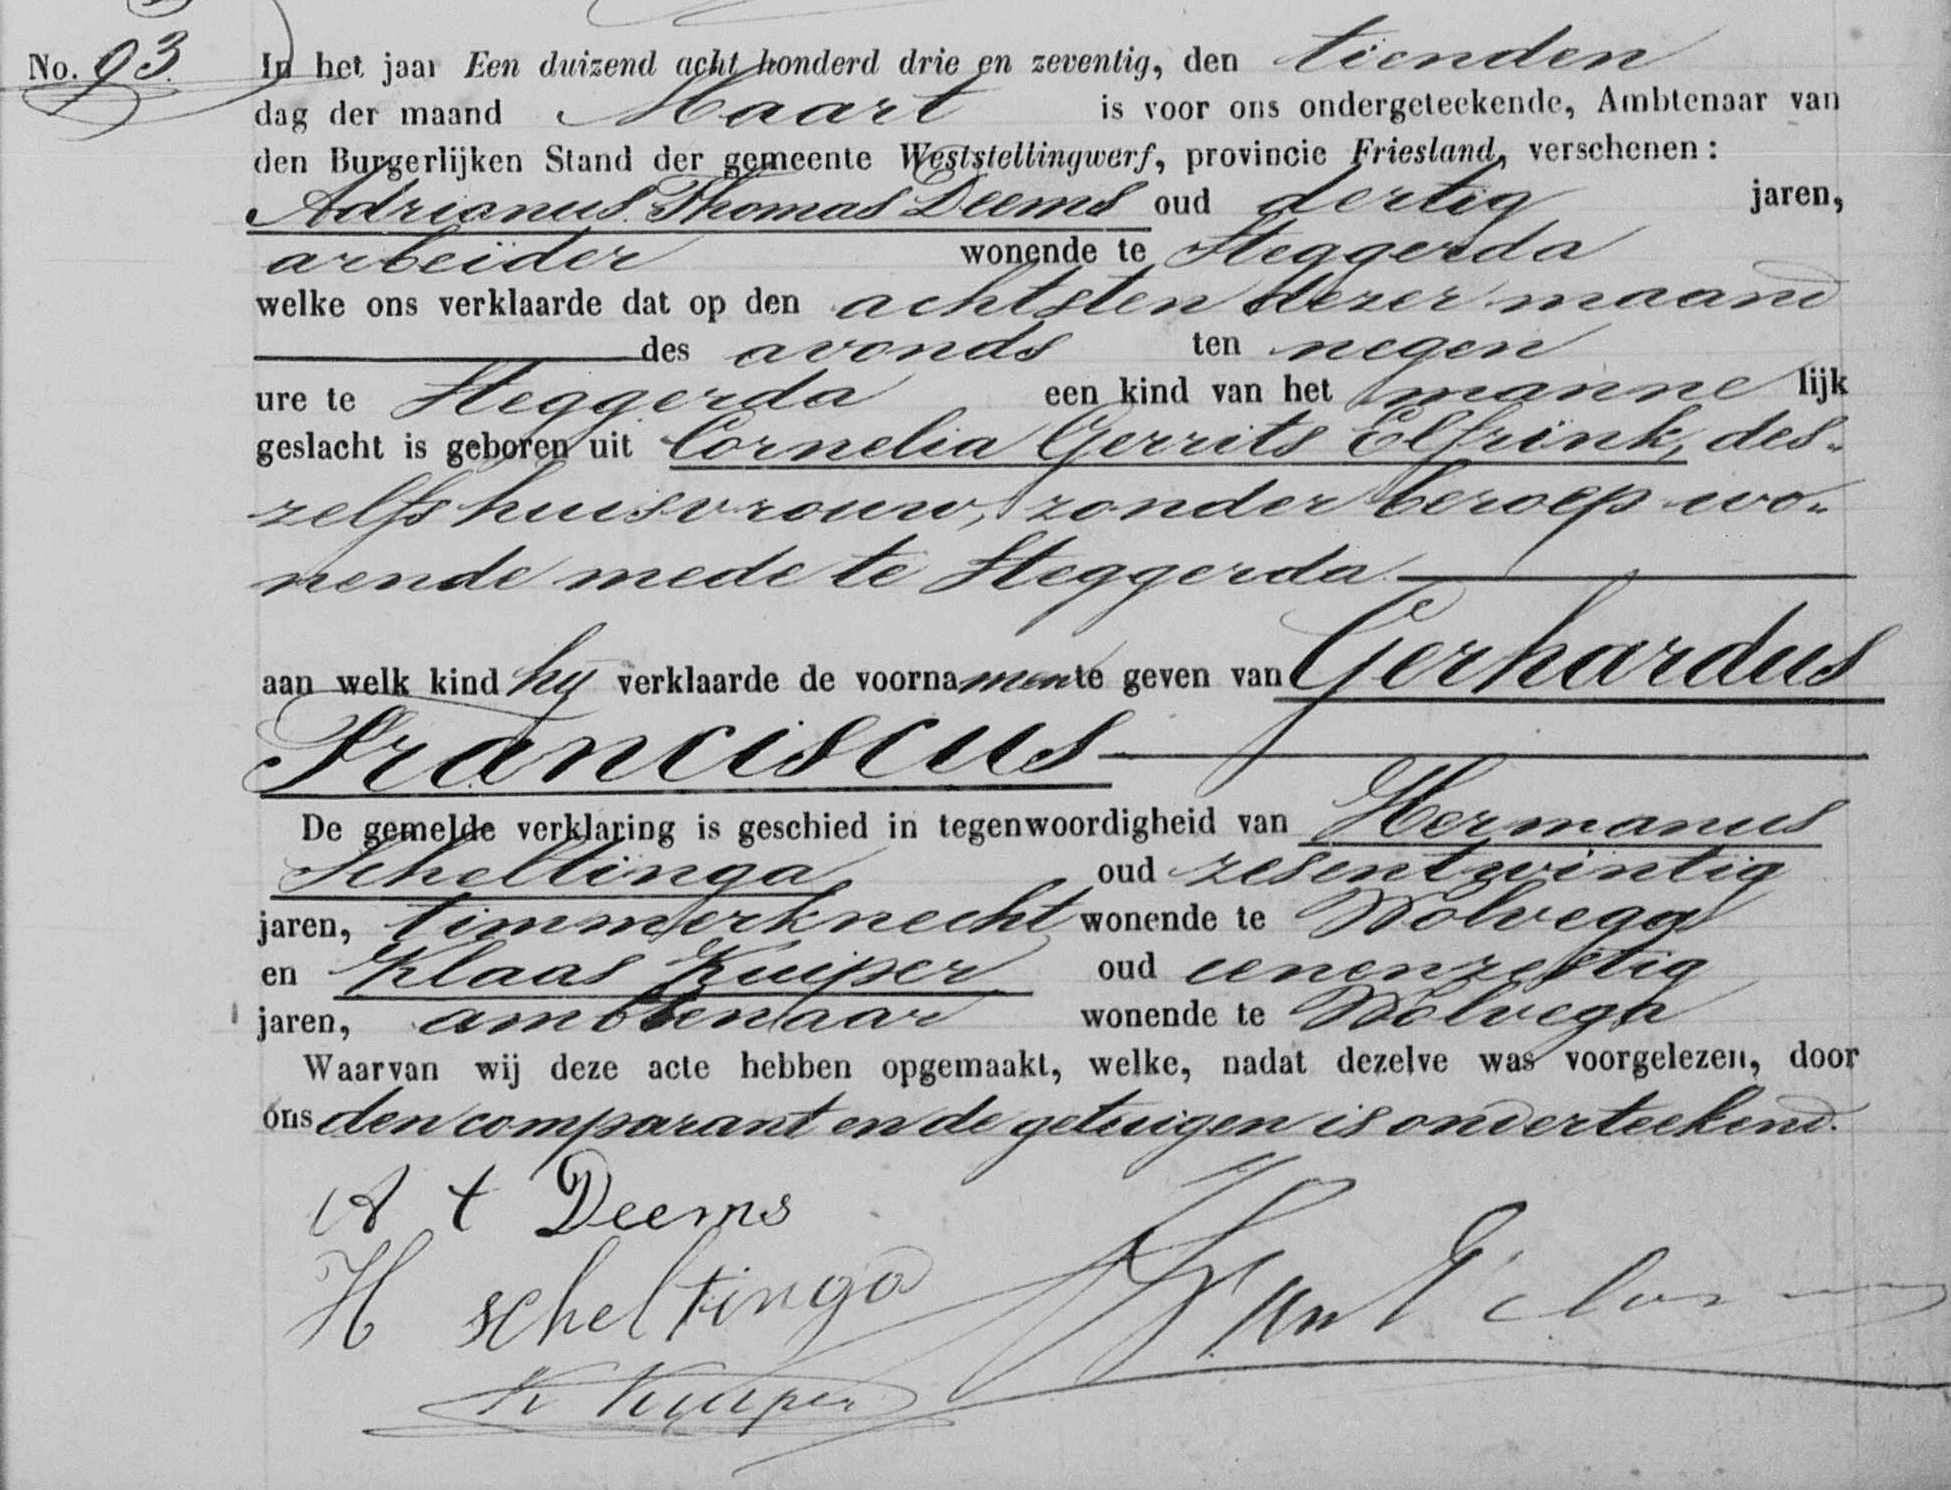 No. 93.
In het jaar Een duizend acht honderd drie en zeventig, den tienden
dag der maand Maart is voor ons ondergeteekende, Ambtenaar van
den Burgerlijken Stand der gemeente Weststellingwerf, provincie Friesland, verschenen:
Adrianus Thomas Deems oud dertig jaren,
arbeider wonende te Steggerda
welke ons verklaarde dat op den achtsten dezer maand
des avonds ten negen
ure te Steggerda een kind van het manne lijk
geslacht is geboren uit Cornelia Gerrits Elfrink, des-
zelfs huisvrouw, zonder beroep wo-
nende mede te Steggerda
aan welk kind hy verklaarde de voornamen te geven van Gerhardus
Franciscus
De gemelde verklaring is geschied in tegenwoordigheid van Hermanus
Scheltinga oud zesentwintig
jaren, timmerknecht wonende te Wolvega
en Klaas Kuiper oud eenenzestig
jaren, ambtenaar wonende te Wolvega
Waarvan wij deze acte hebben opgemaakt, welke, nadat dezelve was voorgelezen, door
ons den comparant en de getuigen is onderteekend.
A t Deems
H scheltinga
K Kuiper